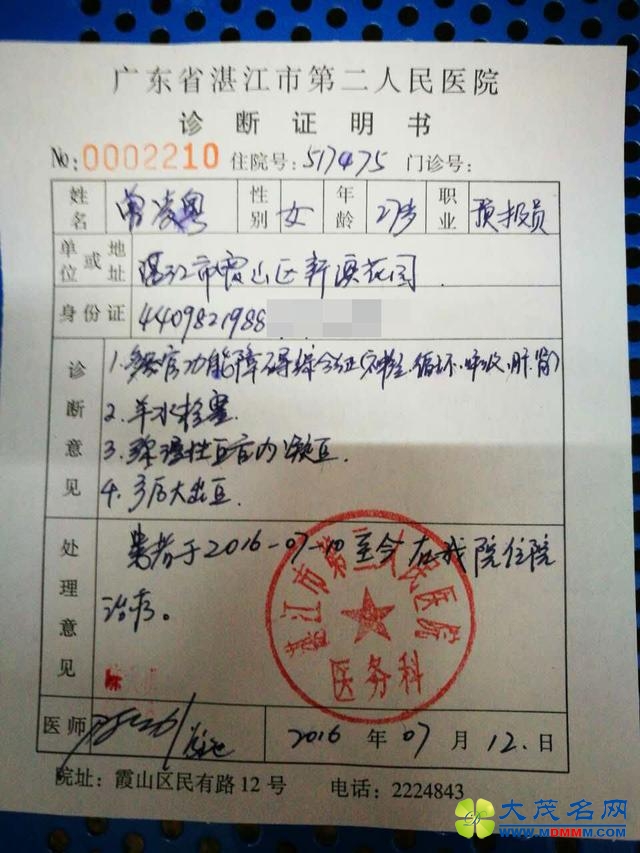 广东省湛江市第二人民医院
诊断证明书
No:0002210 住院号:517475 门诊号:
姓名 曾凌粤 性别 女 年龄 27岁 职业 预报员
单位或地址 湛江市霞山区新澳花园
身份证 4409821988
诊断意见
1.多器官功能障碍综合征(神经.循环.呼吸.肝.肾)
2.羊水栓塞
3.弥漫性血管内凝血.
4.产后大出血
处理意见
患者于2016-07-10至今在我院住院
治疗。
湛江市第二人民医院
医务科
医师
2016 年 07 月 12.日
院址:霞山区民有路12号 电话:2224843
大茂名网
WWW.MDMMM.COM